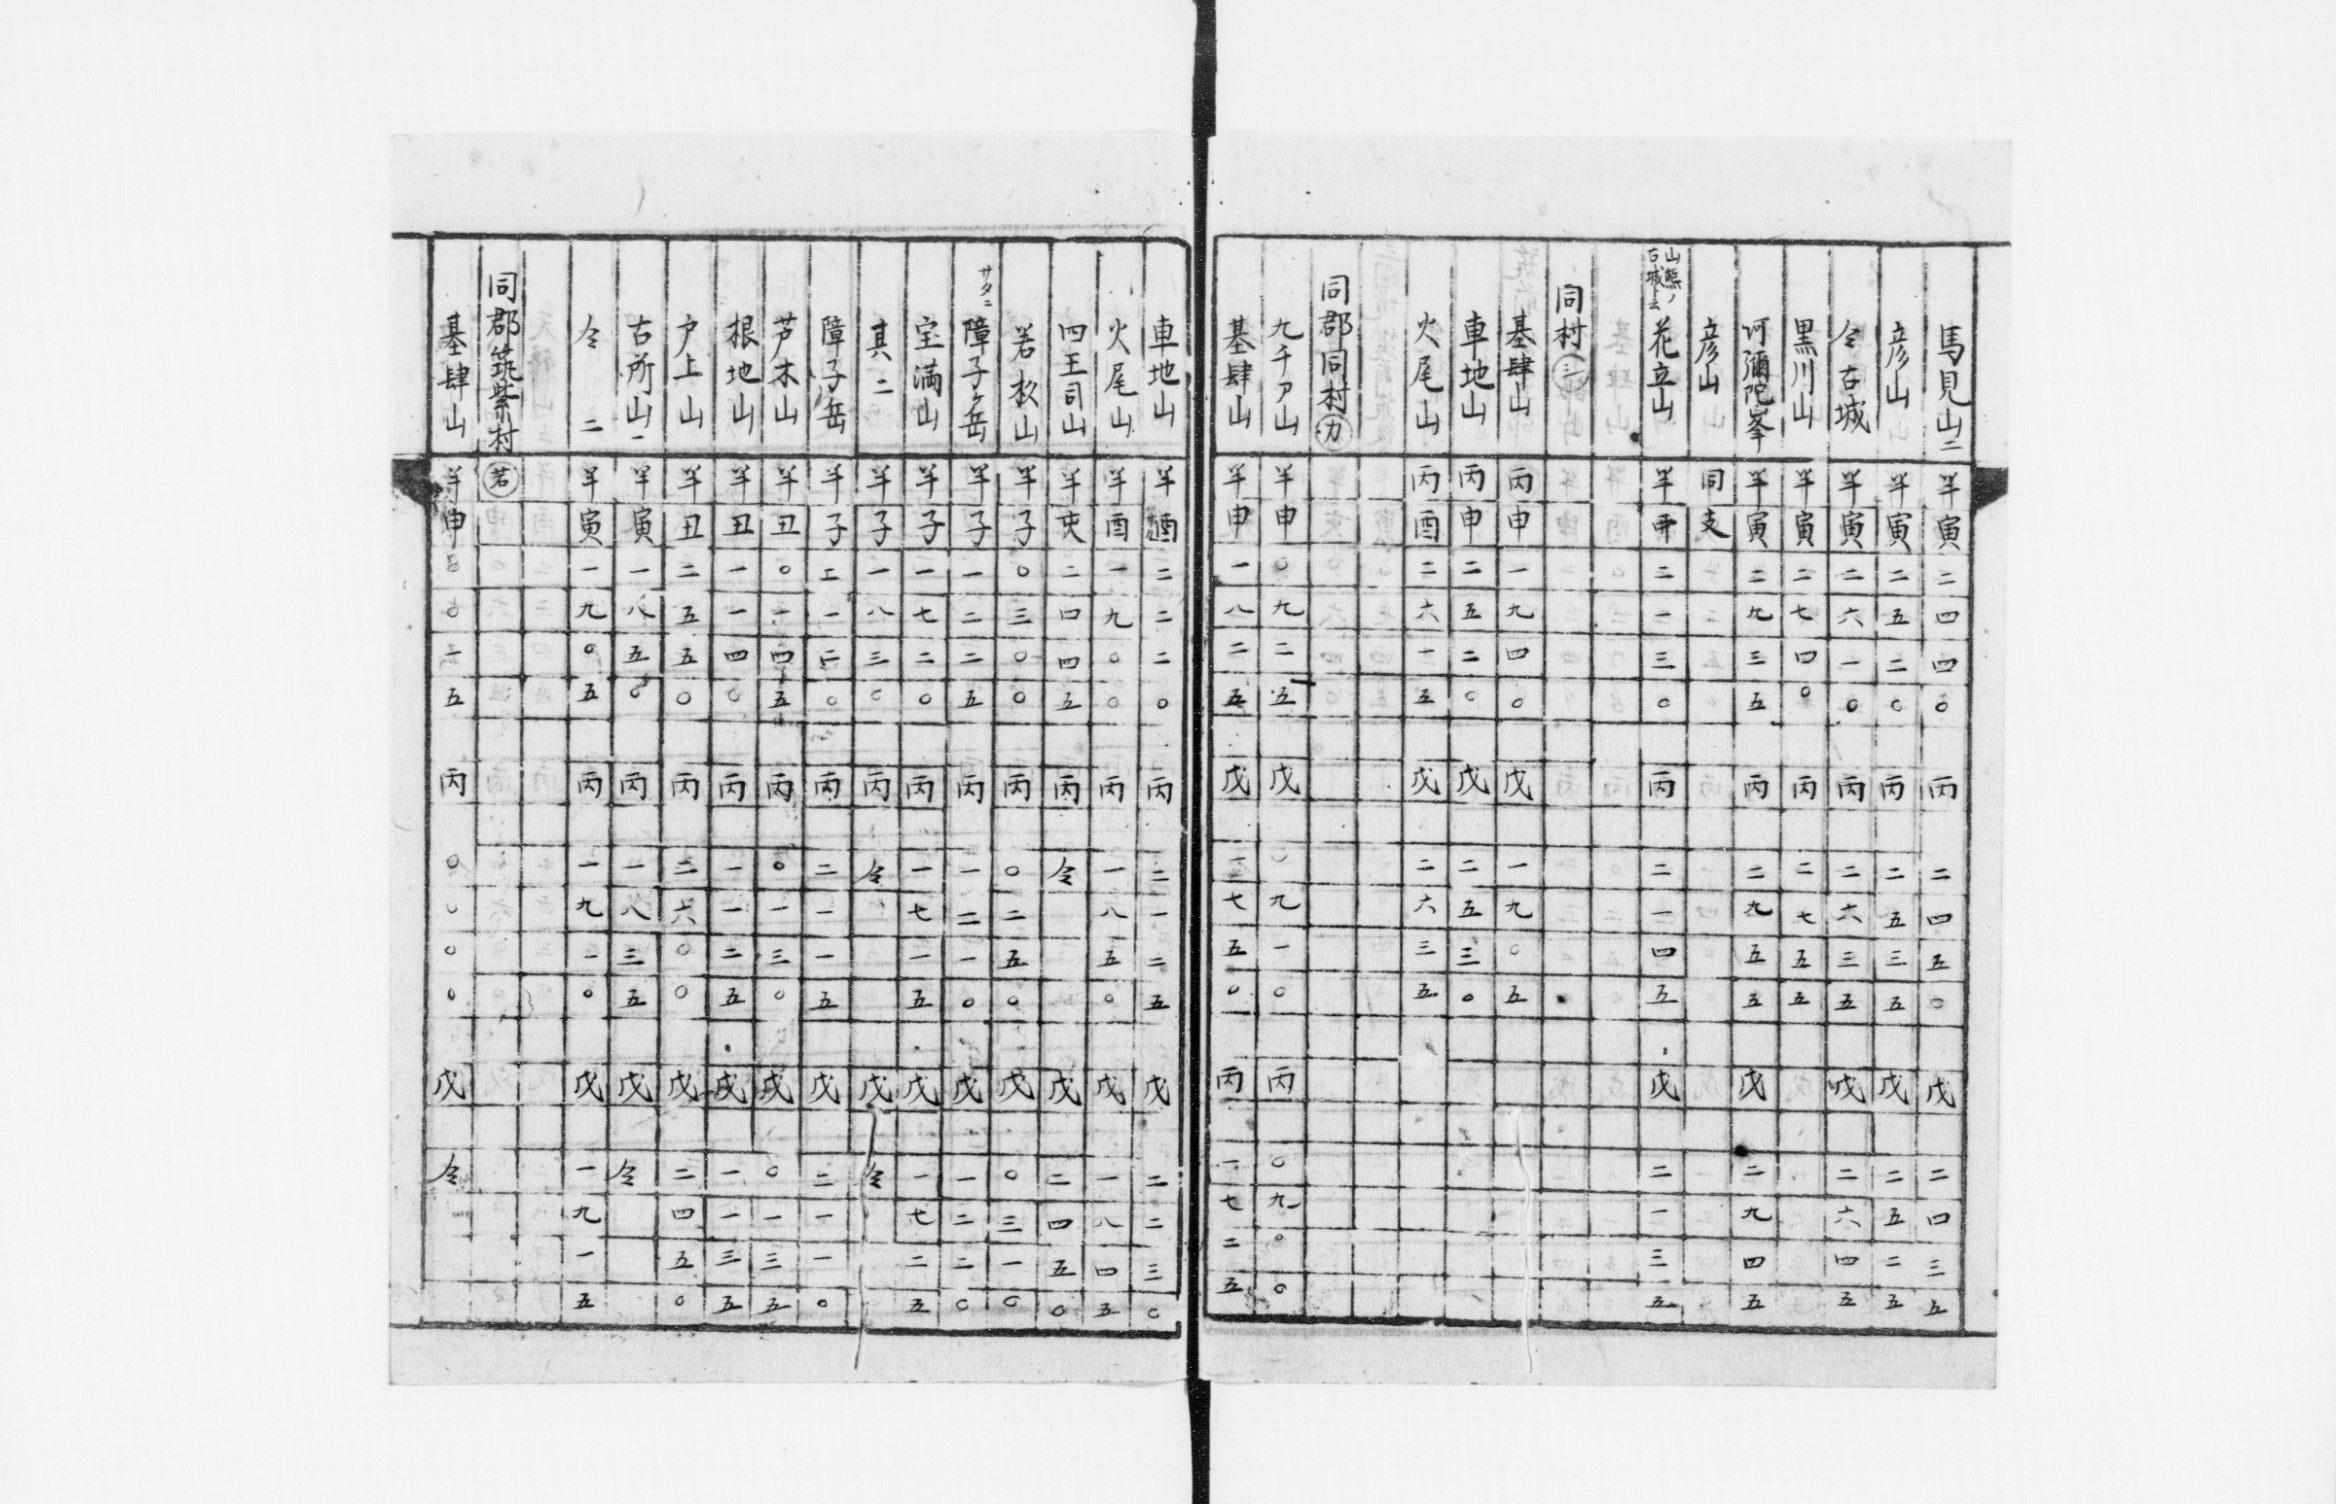 馬見山二 半寅 二四四〇 丙 二四五〇 戊 二四三五
彦山 半寅 二五二〇 丙 二五三五 戊 二五二五
仝古城 半寅 二六一〇 丙 二六三五 戊 二六四五
黒川山 半寅 二七四〇 丙 二七五五
阿彌陀峯 半寅 二九三五 丙 二九五五 戊 二九四五
彦山 同支
山熊ノ古城云 花立山 半 二一三〇 丙 二一四五 戊 二一三五
同村 三
基肆山 丙申 一九四〇 戊 一九〇五
車地山 丙申 二五二〇 戊 二五三〇
火尾山 丙酉 二六一五 戊 二六三五
同郡同村 力
九千ア山 半申 〇九二五 戊 〇九一〇 丙 〇九〇〇
基肆山 半申 一八二五 戊 一七五〇 丙 一七二五
車地山 半酉 二二二〇 丙 二一二五 戊 二二三〇
火尾山 半酉 一九〇〇 丙 一八五〇 戊 一八四五
四王司山 半 二四四五 丙 仝 戊 二四五〇
若杦山 半子 〇三〇〇 丙 〇二五〇 戊 〇三一〇
サタニ 障子岳 半子 一二二五 丙 一二一〇 戊 一二二〇
宝満山 半子 一七二〇 丙 一七一五 戊 一七二五
其二 半子 一八三〇 丙 仝 戊 仝
障子岳 半子 二一二〇 丙 二一一五 戊 二一一〇
芦木山 半丑 〇一四五 丙 〇一三〇 戊 〇一三五
根地山 半丑 一一四〇 丙 一一二五 戊 一一三五
戸上山 半丑 二五五〇 丙 二六〇〇 戊 二四五〇
古所山一 半寅 一八五〇 丙 一八三五 戊 仝
仝 二 半寅 一九〇五 丙 一九一〇 戊 一九一五
同郡筑紫村 若
基肆山 半申 〇一五 丙 〇〇〇〇 戊 仝